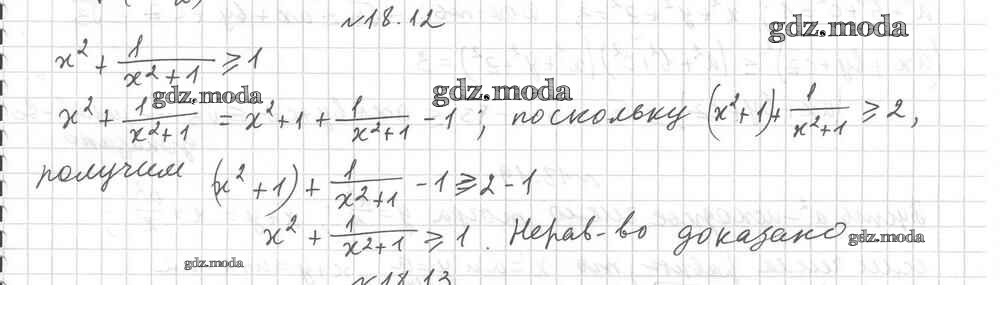 №18.12
gdz.moda
x² + 1/(x²+1) ⩾ 1
gdz.moda
gdz.moda
x² + 1/(x²+1) = x²+1 + 1/(x²+1) - 1; поскольку (x²+1)+ 1/(x²+1) ⩾ 2,
получим (x²+1) + 1/(x²+1) - 1 ⩾ 2-1
x² + 1/(x²+1) ⩾ 1. Нерав-во доказано
gdz.moda
gdz.moda
№18.13